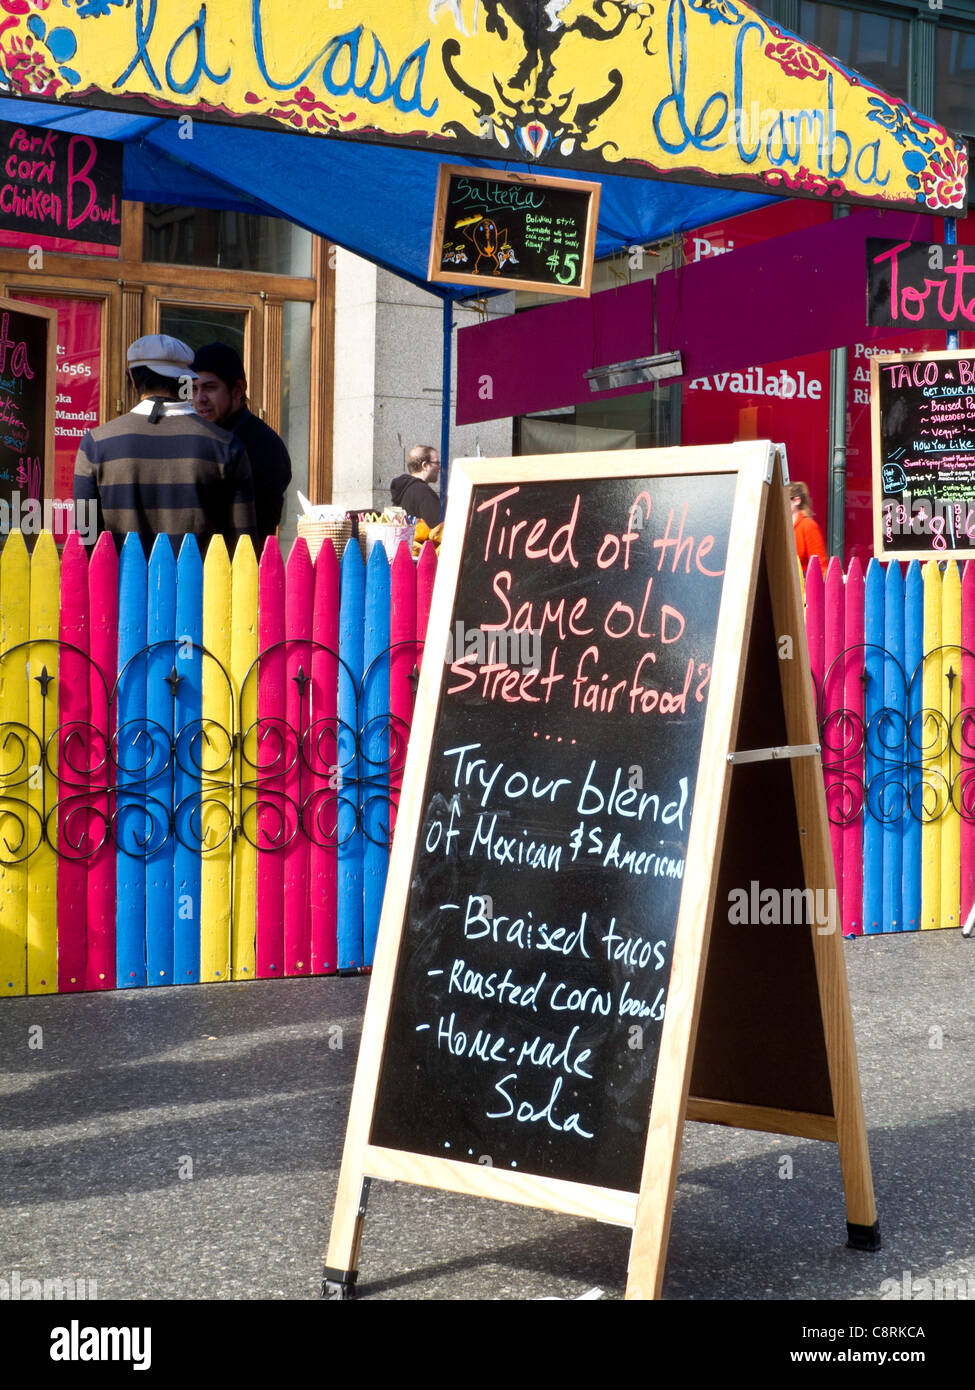 la Casa de Camba
Pork
Corn
Chicken
B
Bowl
Salteña
Bolivian style
$5
Torta
Pri
Available
Peter
An
Ric
t:
.6565
oka
Mandell
Skulnik
TACO or B
GET YOUR M
~ Braised Po
~ SHREDDED C
~ Veggie!
How You Like
Tired of the
Same OLD
Street fair food?
....
Try our blend
of Mexican & S American
- Braised tacos
- Roasted corn bowls
- Home-made
Soda
....
alamy
alamy
Image ID: C8RKCA
www.alamy.com